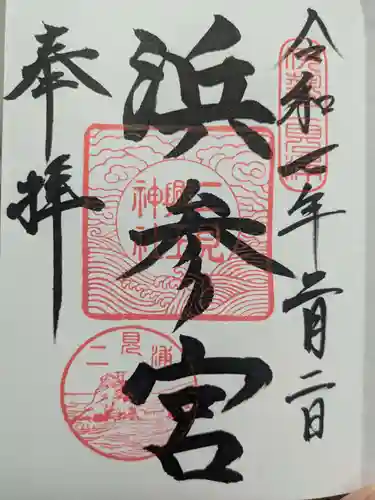 令和二年二月二日
浜参宮
奉拝
二見
興玉
神社
二見浦